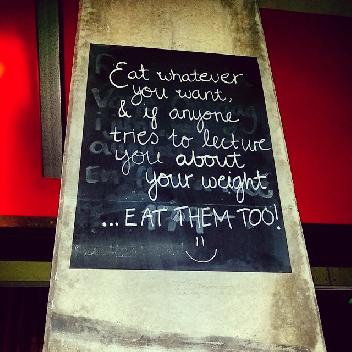 Eat whatever
you want,
& if anyone
tries to lecture
you about
your weight
...EAT THEM TOO!